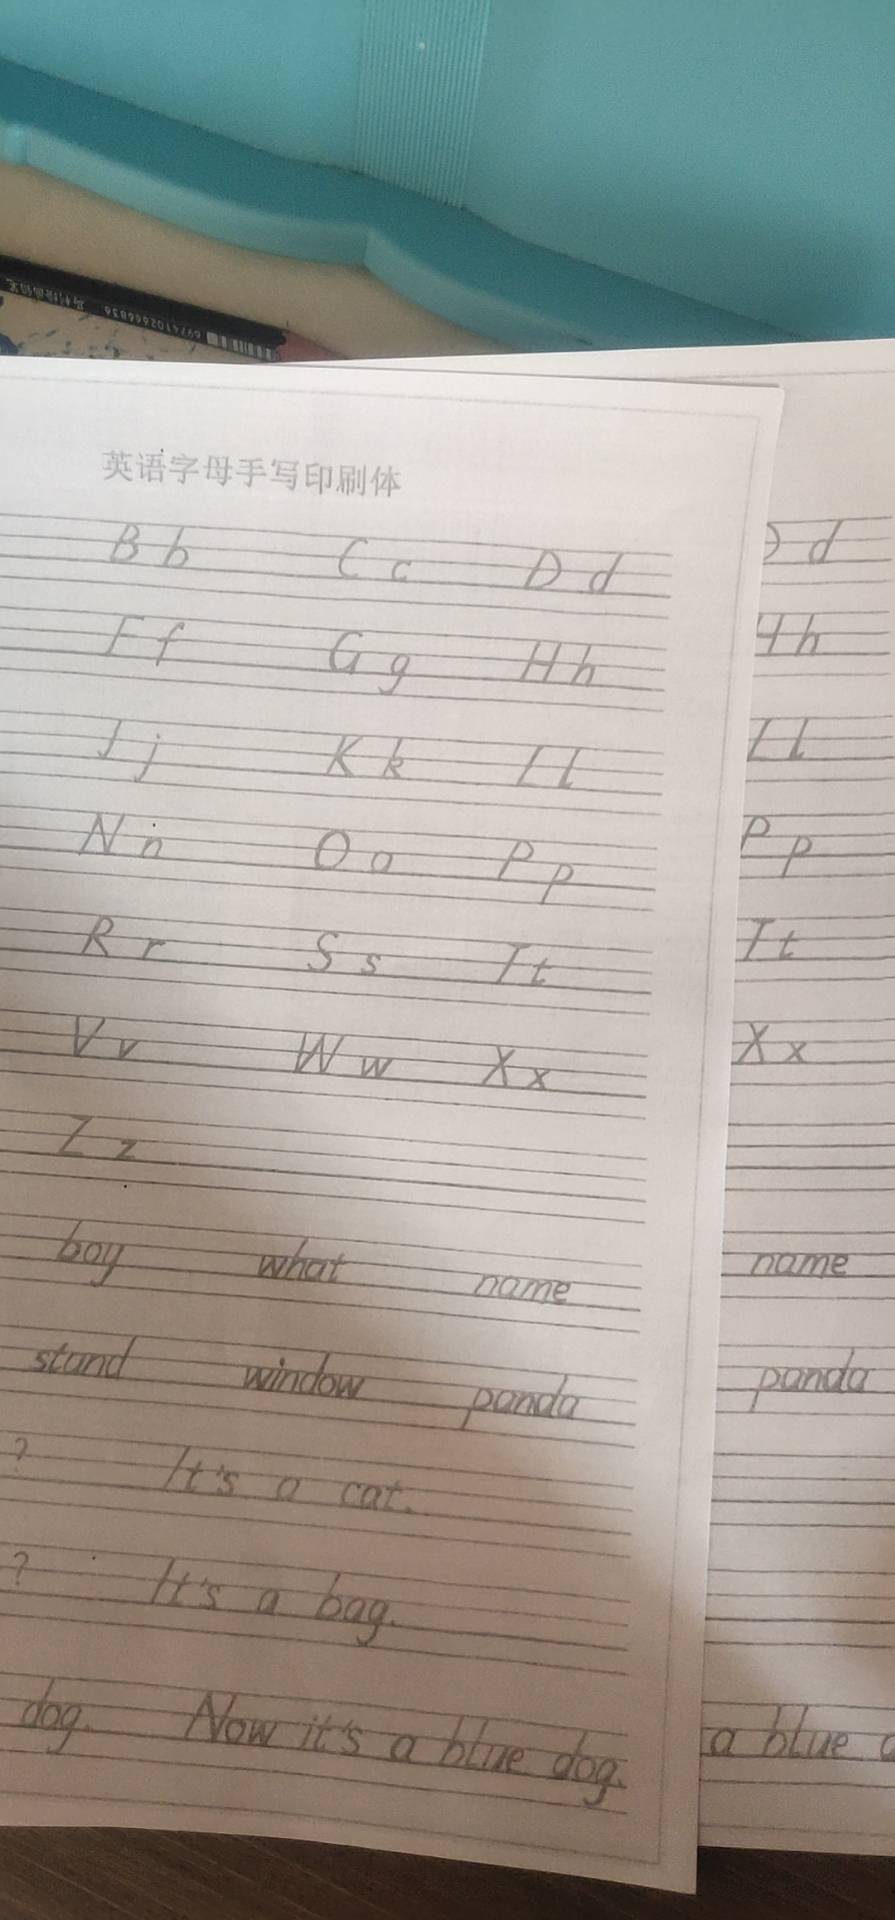 6974102666836
英语字母手写印刷体
B b C c D d
F f G g H h
J j K k L l
N n O o P p
R r S s T t
V v W w X x
Z z
boy what name
stand window panda
? It's a cat.
? It's a bag.
dog. Now it's a blue dog.
d
H h
L l
P p
T t
X x
name
panda
a blue